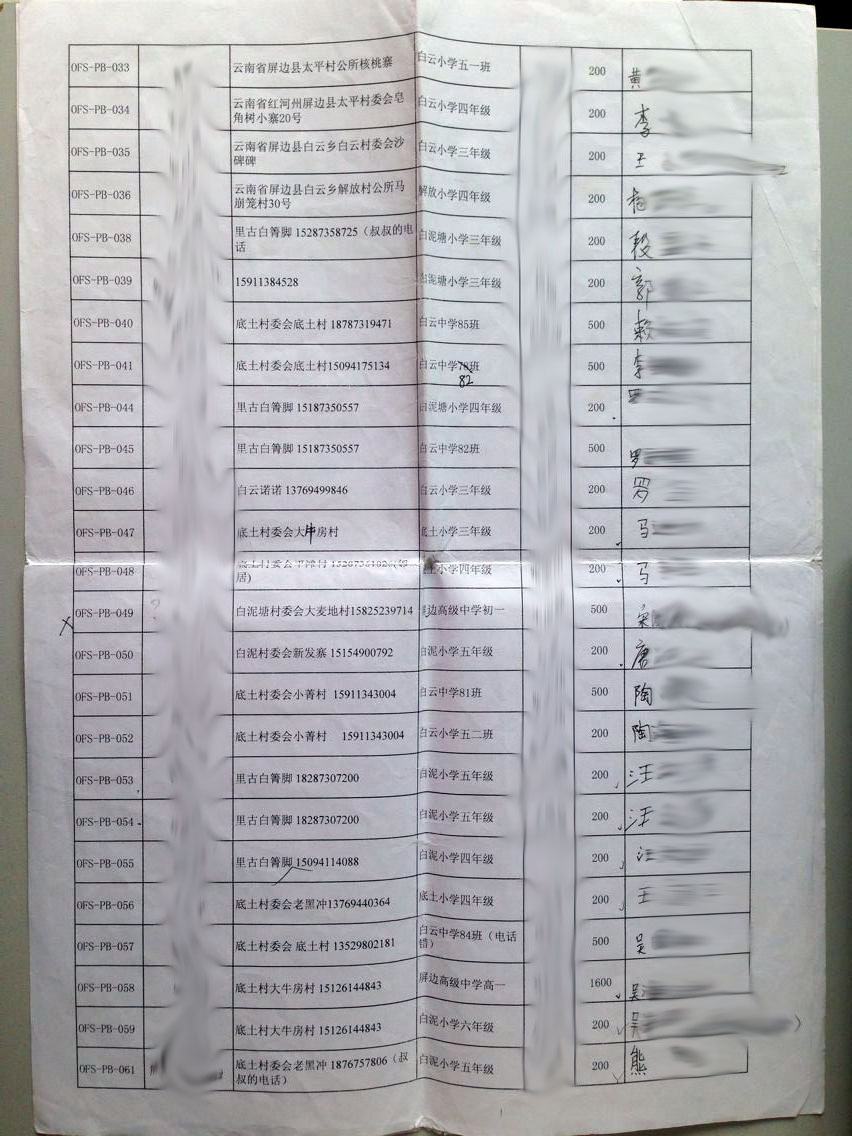 OFS-PB-033 云南省屏边县太平村公所核桃寨 白云小学五一班 200 黄
OFS-PB-034 云南省红河州屏边县太平村委会皂 白云小学四年级 200 李
角树小寨20号
OFS-PB-035 云南省屏边县白云乡白云村委会沙 白云小学三年级 200 王
碑碑
OFS-PB-036 云南省屏边县白云乡解放村公所马 解放小学四年级 200 杨
崩笼村30号
OFS-PB-038 里古白箐脚 15287358725（叔叔的电 白泥塘小学三年级 200 段
话
OFS-PB-039 15911384528 白泥塘小学三年级 200 郭
OFS-PB-040 底土村委会底土村 18787319471 白云中学85班 500
OFS-PB-041 底土村委会底土村15094175134 白云中学78班 500 李
82
OFS-PB-044 里古白箐脚 15187350557 白泥塘小学四年级 200 罗
OFS-PB-045 里古白箐脚 15187350557 白云中学82班 500 罗
OFS-PB-046 白云诺诺 13769499846 白云小学三年级 200 罗
OFS-PB-047 底土村委会大牛房村 底土小学三年级 200 马
OFS-PB-048 底土村委会 底土小学四年级 200 马
居)
OFS-PB-049 白泥塘村委会大麦地村15825239714 屏边高级中学初一 500 宋
OFS-PB-050 白泥村委会新发寨 15154900792 白泥小学五年级 200 唐
OFS-PB-051 底土村委会小菁村 15911343004 白云中学81班 500 陶
OFS-PB-052 底土村委会小菁村 15911343004 白云小学五二班 200 陶
OFS-PB-053 里古白箐脚 18287307200 白泥小学五年级 200 汪
OFS-PB-054 里古白箐脚 18287307200 白泥小学五年级 200 汪
OFS-PB-055 里古白箐脚 15094114088 白泥小学四年级 200 汪
OFS-PB-056 底土村委会老黑冲13769440364 底土小学四年级 200 王
OFS-PB-057 底土村委会 底土村 13529802181 白云中学84班（电话 500 吴
错）
OFS-PB-058 底土村大牛房村 15126144843 屏边高级中学高一 1600 吴
OFS-PB-059 底土村大牛房村 15126144843 白泥小学六年级 200 吴
OFS-PB-061 底土村委会老黑冲 1876757806（叔 白泥小学五年级 200 熊
叔的电话）